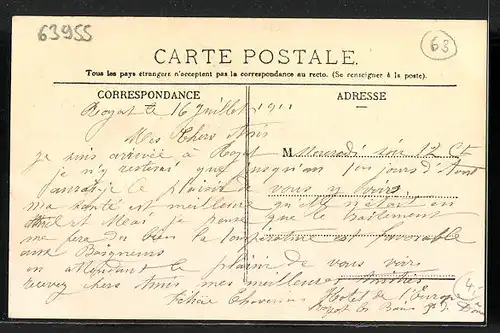 63955
63
CARTE POSTALE.
Tous les pays étrangers n'acceptent pas la correspondance au recto. (Se renseigner à la poste).
CORRESPONDANCE
ADRESSE
Royat le 16 Juillet 1911
Mes Chers Amis
M
je suis arrivée à Royat Mercredi soir 12 Ct
je n'y resterai que jusqu'au 1er jours d'Août
aurai-je le plaisir de vous y voir.
ma santé est meilleure qu'elle n'était en
et Mai je pense que le traitement
me fera du bien la température est favorable
aux Baigneurs
en attendant le plaisir de vous voir
recevez chers Amis mes meilleures amitiés
Hotel de l'Europe
Royat les Bains